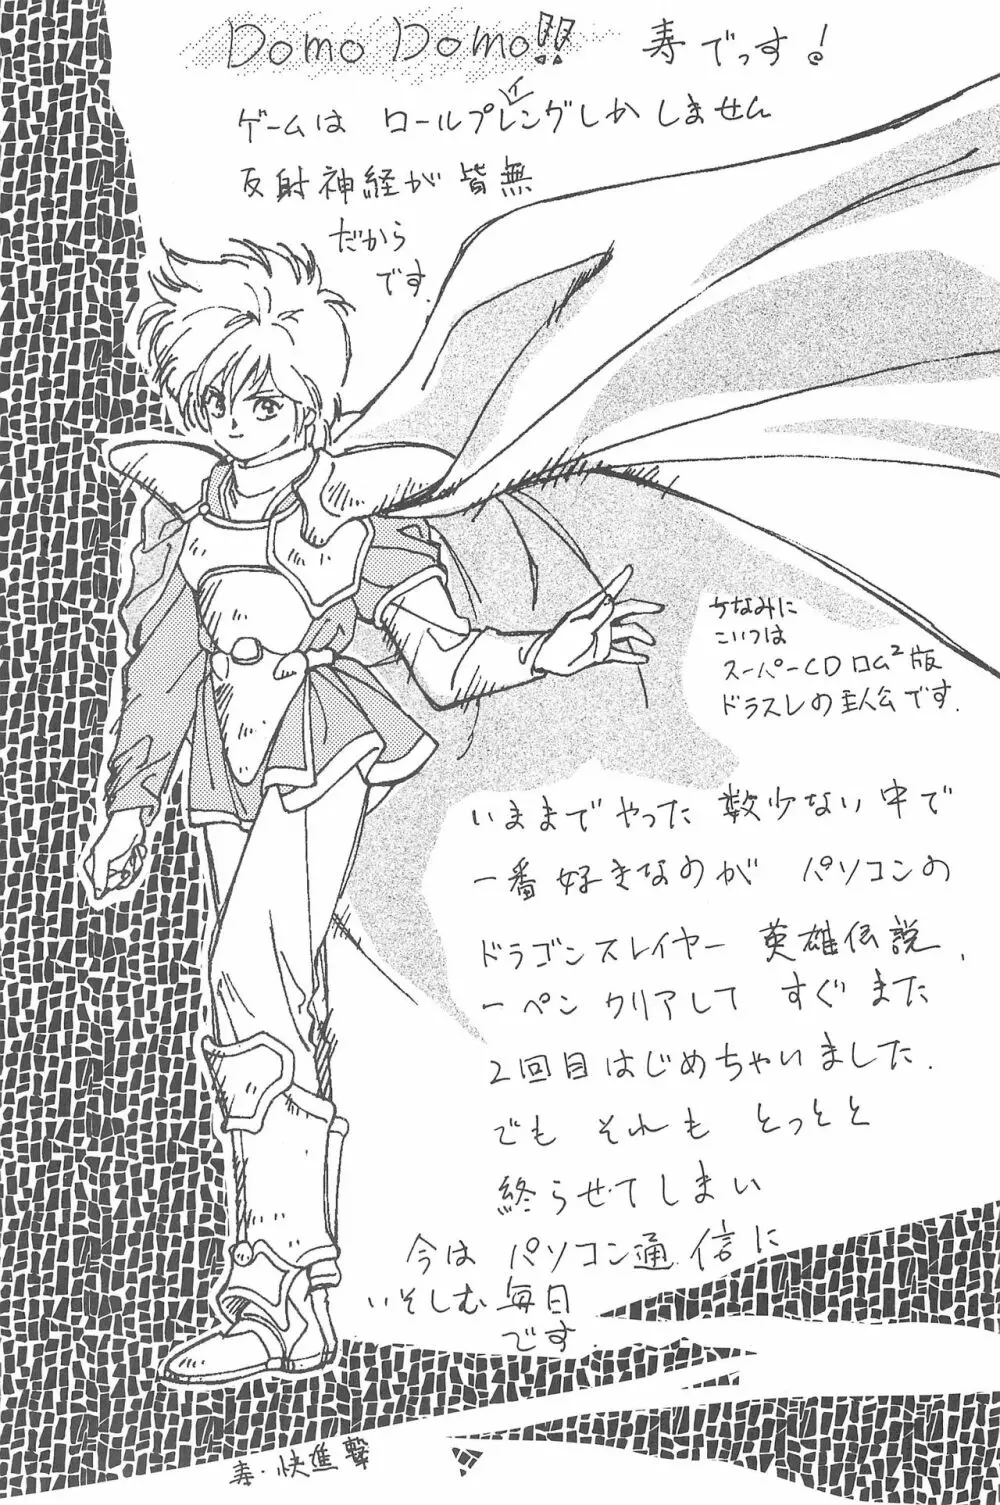 Domo Domo!! 寿でっす!
ゲームは ロールプレイングしかしません
反射神経が皆無
だから
です.
ちなみに
こいつは
スーパーCDロム²版
ドラスレの主人公です.
いままでやった数少ない中で
一番好きなのが パソコンの
ドラゴンスレイヤー 英雄伝説,
一ペン クリアして すぐまた
2回目はじめちゃいました.
でも それも とっとと
終らせてしまい
今は パソコン通信に
いそしむ毎日
です.
寿・快進撃